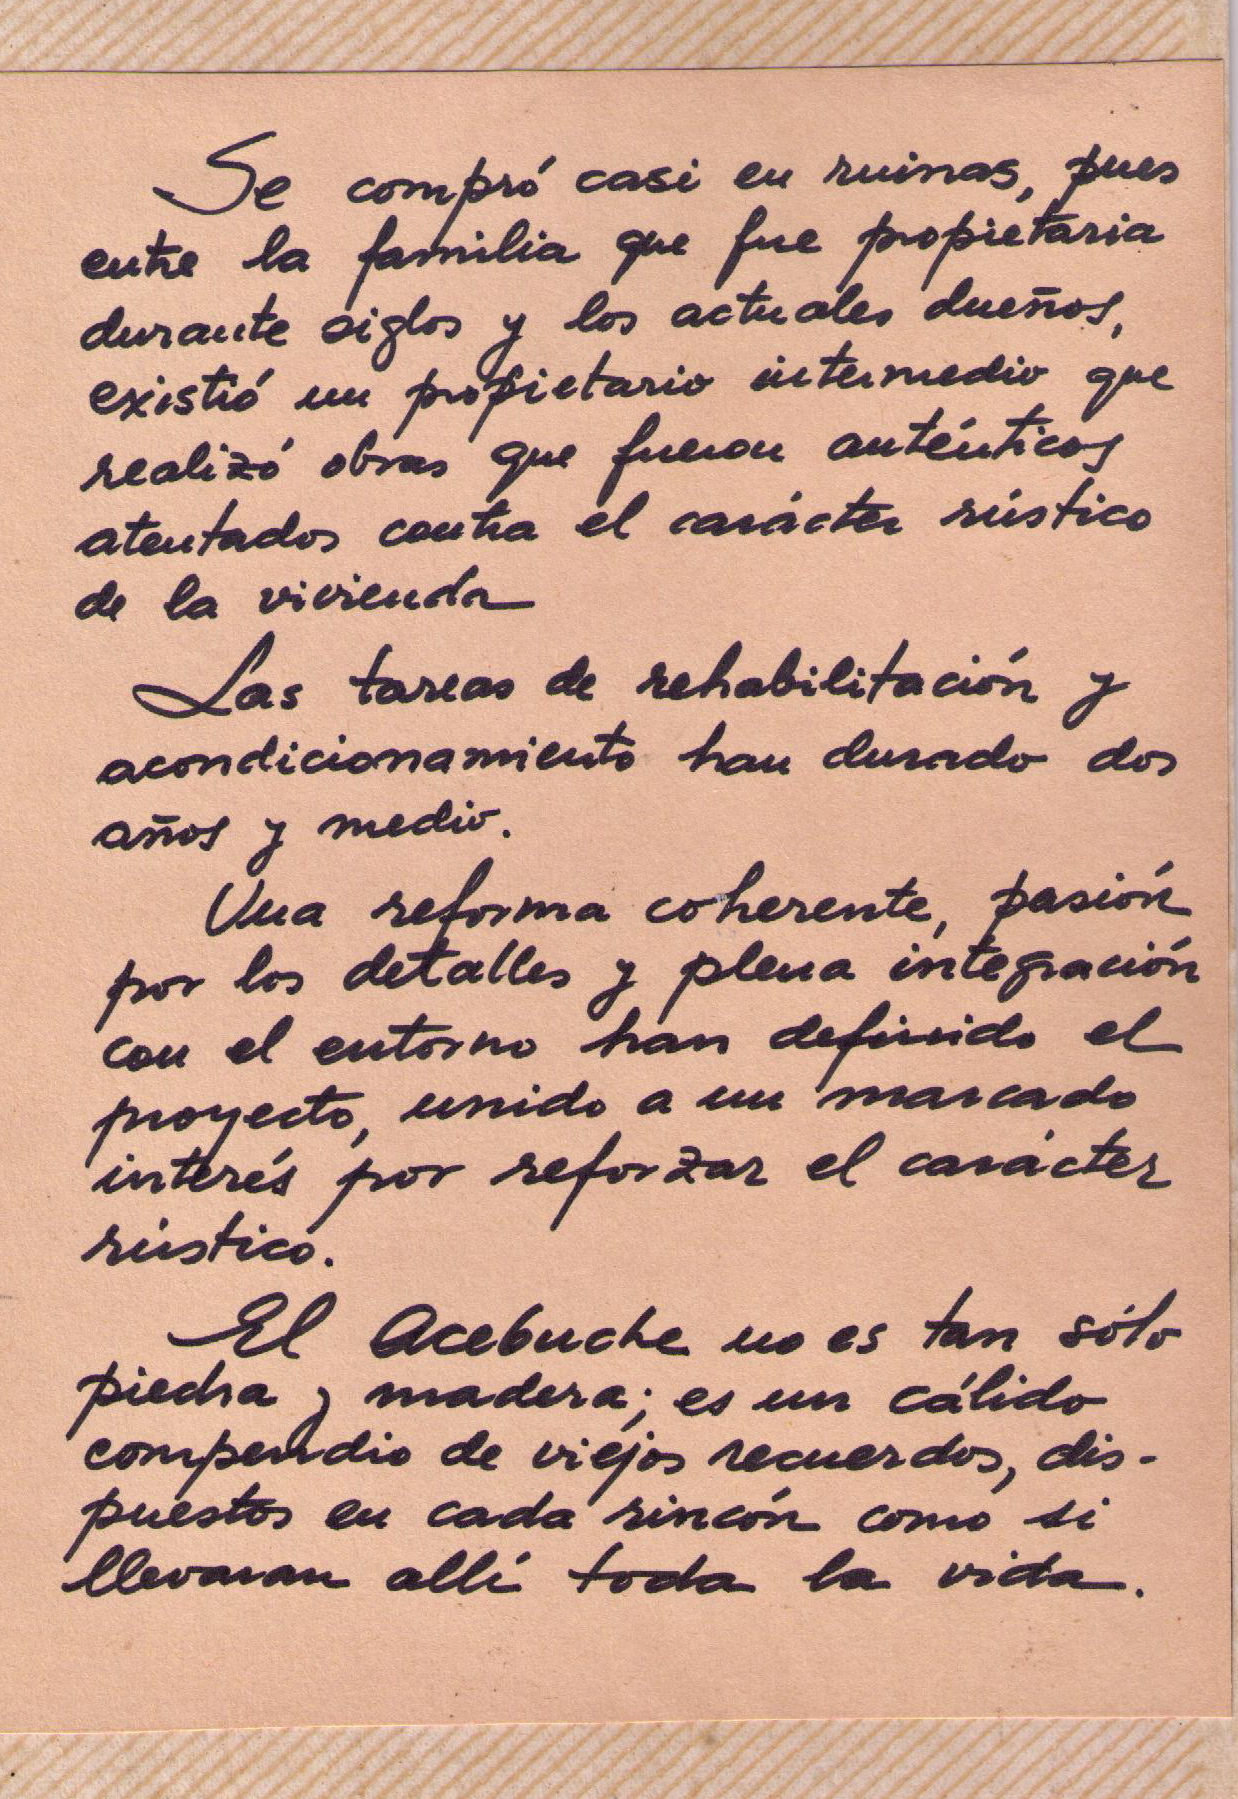 Se compró casi en ruinas, pues
entre la familia que fue propietaria
durante siglos y los actuales dueños,
existió un propietario intermedio que
realizó obras que fueron auténticos
atentados contra el carácter rústico
de la vivienda
Las tareas de rehabilitación y
acondicionamiento han durado dos
años y medio.
Una reforma coherente, pasión
por los detalles y plena integración
con el entorno han definido el
proyecto, unido a un marcado
interés por reforzar el carácter
rústico.
El Acebuche no es tan sólo
piedra y madera; es un cálido
compendio de viejos recuerdos, dis-
puestos en cada rincón como si
llevaran allí toda la vida.